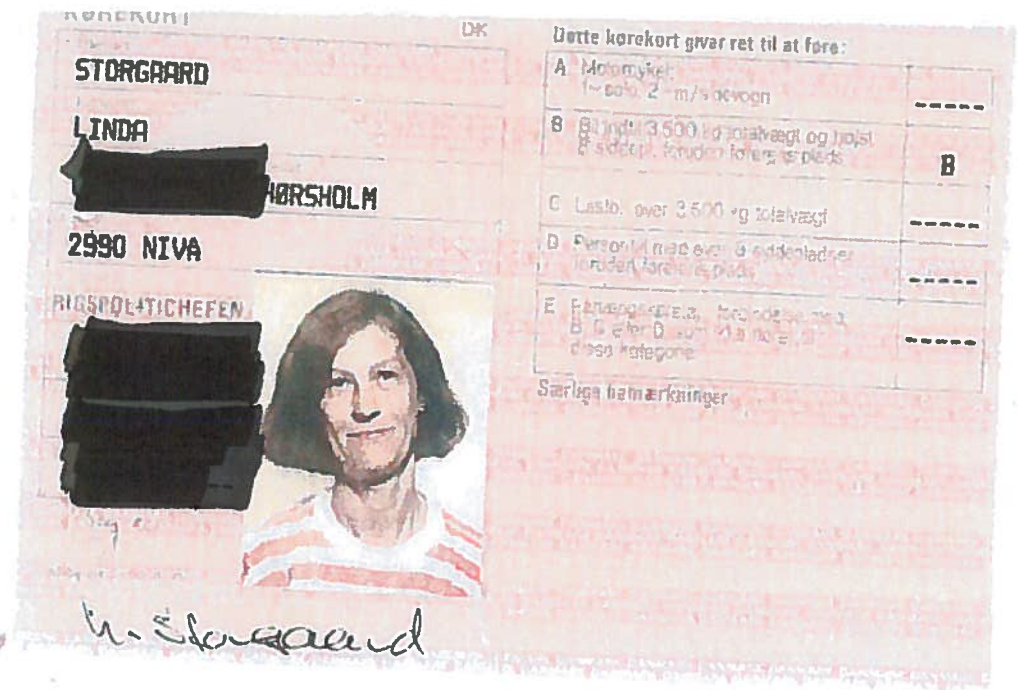 KØREKORT
DK
STORGAARD
LINDA
HØRSHOLM
2990 NIVA
RIGSPOLITICHEFEN
L. Storgaard
Dette kørekort giver ret til at føre:
A Motorcykel:
1 = solo, 2 = m/sidevogn
-----
B Bil indtil 3.500 kg totalvægt og højst
8 siddepl. foruden førerens plads
B
C Lastb. over 3.500 kg totalvægt
-----
D Personbil med over 8 siddepladser
foruden førerens plads
-----
E
B, C eller D som
disse kategorier
-----
Særlige bemærkninger